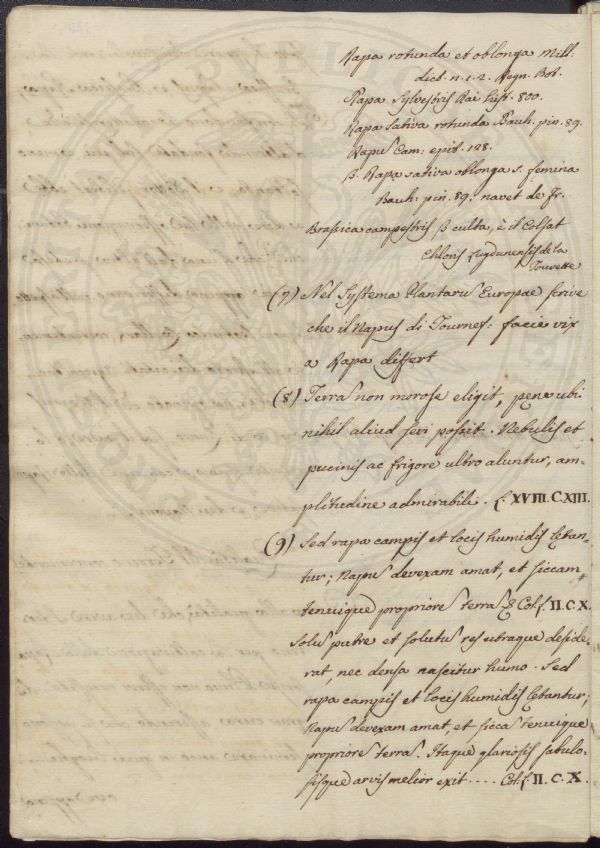 Rapa rotunda et oblonga Mill:
dict. n. 1. 2. Regn. Bot.
Rapa sylvestris Rai hist. 800.
Rapa sativa rotunda Bauh. pin. 89.
Rapus Cam: epit. 128.
β. Rapa sativa oblonga s. femina
Bauh: pin. 89: navet de Fr.
Brassica campestris, β culta, è il Colsat
Chloris Lugdunensis de la
Tourette
(7) Nel Systema Plantarũ Europae scrive
che il Napus di Tournef: facie vix
a Rapa differt
(8) Terrã non morose eligit, pene ubi
nihil aliud seri possit. Nebulis et
pruinis ac frigore ultro aluntur, am-
plitudine admirabili. L. XVIII. C. XIII.
(9) Sed rapa campis et locis humidis lętan-
tur; Napus devexam amat, et siccam
tenuique propriorẽ terrã Col. L. II. C. X.
Solũ putre et solutũ res utraque deside-
rat, nec densa nascitur humo. Sed
rapa campis et locis humidis lętantur;
Napus devexam amat, et siccã tenuique
propriorẽ terrã. Itaque glariosis sabulo-
sisque arvis melior exit .... Col. L. II. C. X.